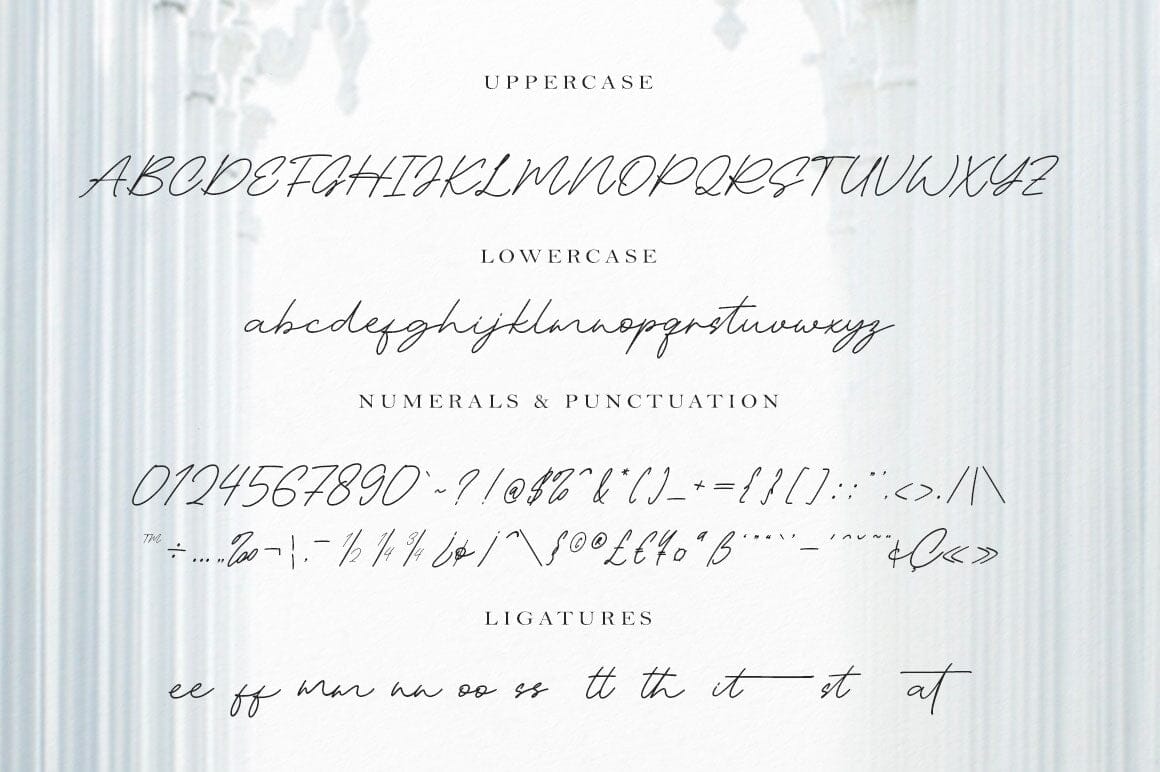 UPPERCASE
ABCDEFGHIJKLMNOPQRSTUVWXYZ
LOWERCASE
abcdefghijklmnopqrstuvwxyz
NUMERALS & PUNCTUATION
0124567890`~?!@$%^&*()_+={}[]:;"',<>./|\
™÷…..‰¬¦.¯½¼¾¿¢¡^\§©®£€¥ºªß
LIGATURES
ee ff mm nn oo ss tt th it st at